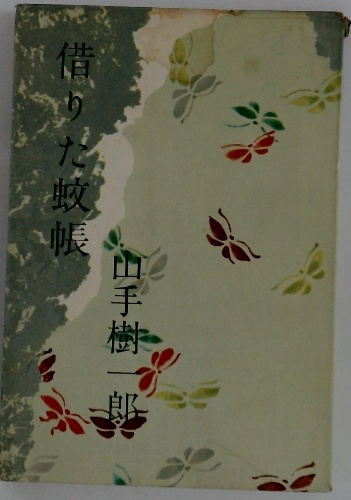 借りた蚊帳
山手樹一郎